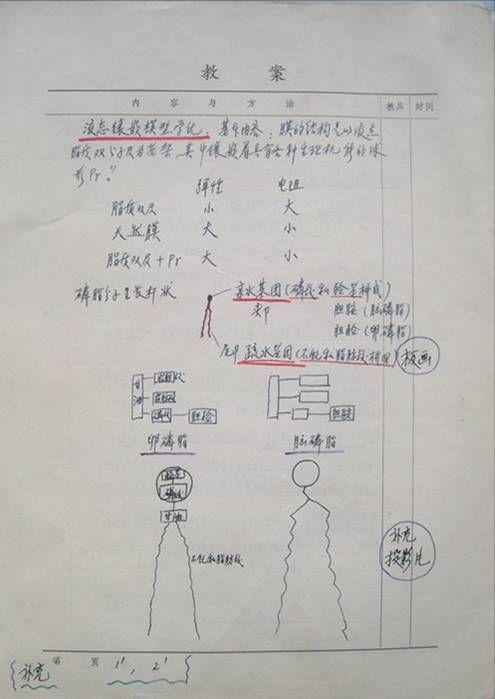 教案
内容与方法 教具 时间
液态镶嵌模型学说：基本内容：膜的结构是以液态
脂质双分子层为支架，其中镶嵌着具有各种生理机能的球
形Pr。"
弹性 电阻
脂质双层 小 大
天然膜 大 小
脂质双层+Pr 大 小
磷脂分子呈长杆状
亲水基团(磷酸和胆碱构成)
头部 胆胺(脑磷脂)
胆硷(卵磷脂)
尾部 疏水基团(不饱和脂肪酸构成)
板画
甘油 脂肪酸
脂肪酸
磷酸 胆硷
胆胺
卵磷脂 脑磷脂
磷酸
甘油
不饱和脂肪酸
补充
投影片
补充 第 页 1', 2'